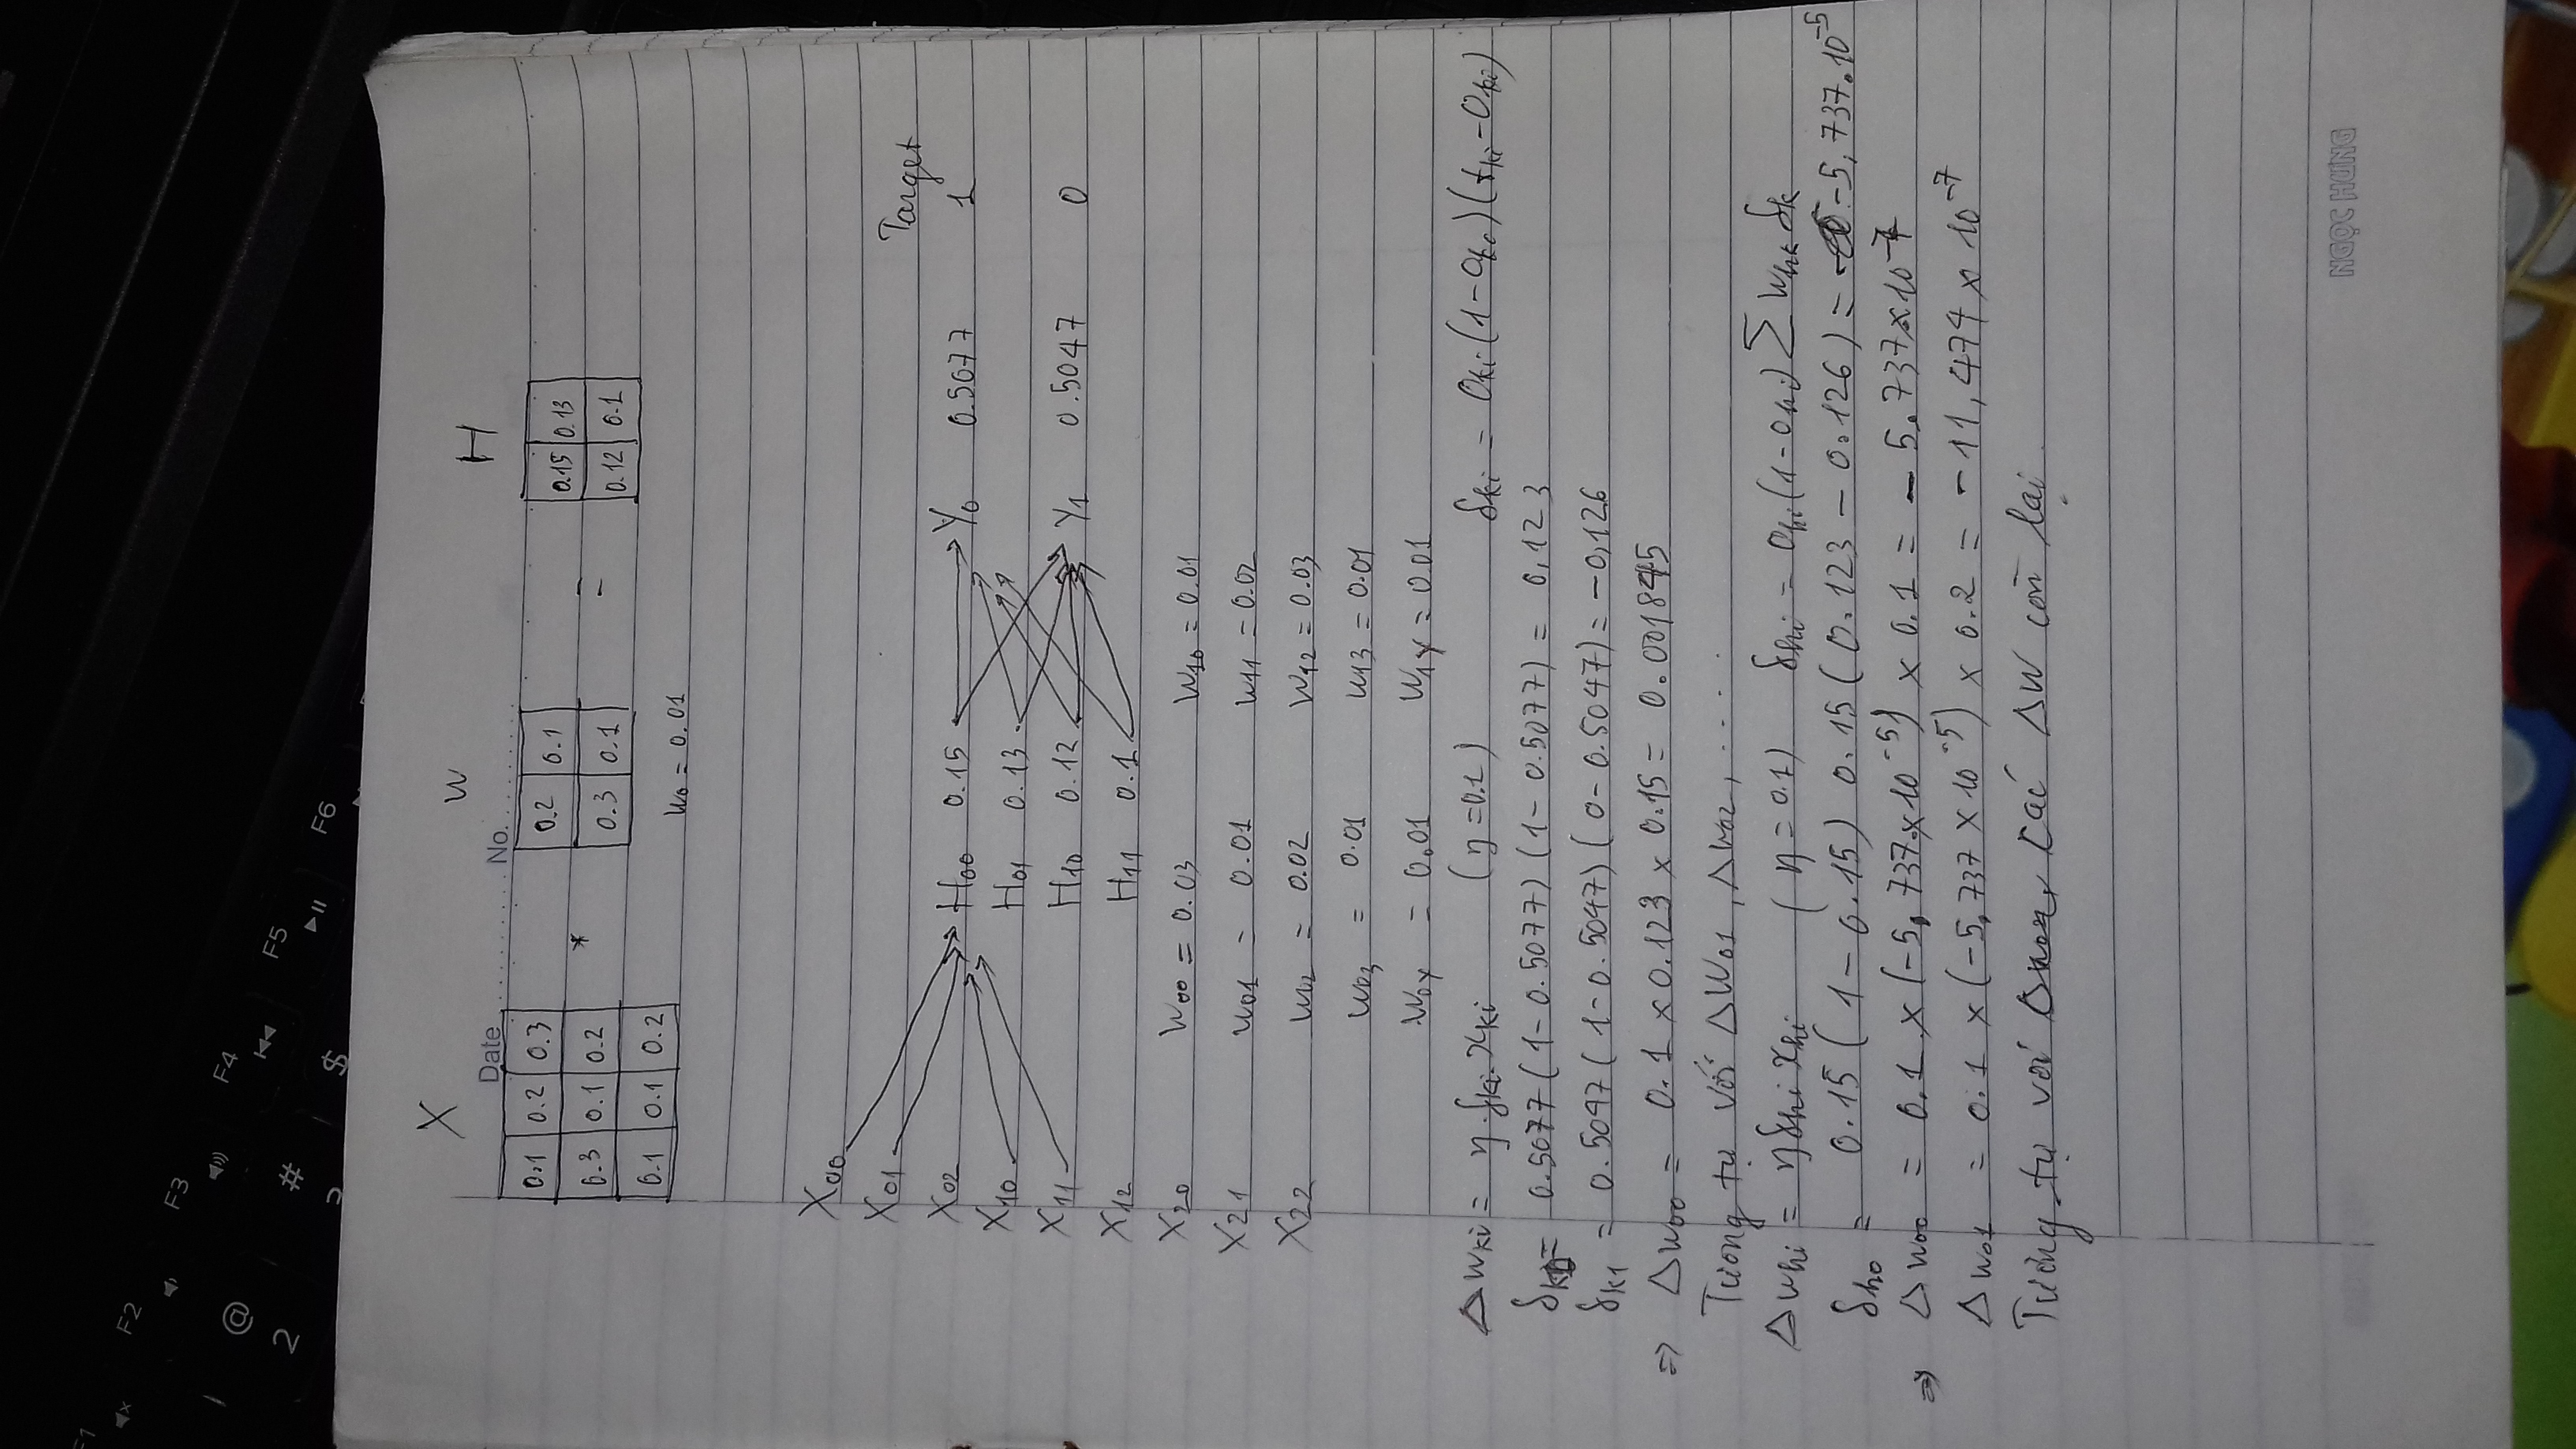 F1
F2
F3
F4
F5
F6
@
2
#
$
X W H
Date No.
0.1 0.2 0.3
0.3 0.1 0.2
0.1 0.1 0.2
*
0.2 0.1
0.3 0.1
=
0.15 0.13
0.12 0.1
W0 = 0.01
X00
X01 Target
X02 H00 0.15 Y0 0.5077 1
X10 H01 0.13
X11 H10 0.12 Y1 0.5047 0
X12 H11 0.1
X20 W00 = 0.03 W10 = 0.01
X21 W01 = 0.01 W11 = 0.02
X22 W02 = 0.02 W12 = 0.03
W03 = 0.01 W13 = 0.01
W0Y = 0.01 W1Y = 0.01
Δwki = η.δki.xki (η = 0.1) δki = Oki(1-Oki)(tki-Oki)
δk0 = 0.5077(1-0.5077)(1-0.5077) = 0,123
δk1 = 0.5047(1-0.5047)(0-0.5047) = -0,126
=> Δw00 = 0.1 x 0.123 x 0.15 = 0.001845
Tương tự với ΔW01, ΔW02, ....
Δwhi = ηδhi xhi (η = 0.1) δhi = Ohi(1-Ohi) Σ Whk δk
δh0 = 0.15(1-0.15) 0.15(0.123-0.126) = -5,737.10^-5
=> Δw00 = 0.1 x (-5,737.x10^-5) x 0.1 = -5.737x10^-7
Δw01 = 0.1 x (-5,737 x 10^-5) x 0.2 = -11,474 x 10^-7
Tương tự với các ΔW còn lại
NGỌC HƯNG